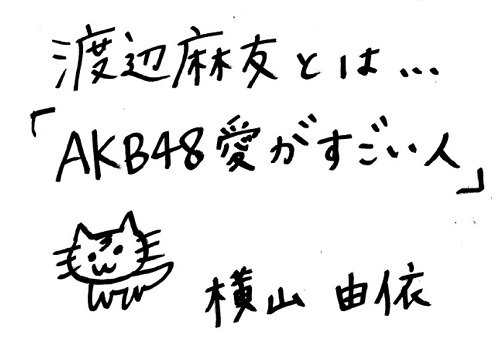 渡辺麻友とは...
「AKB48愛がすごい人」
横山 由依